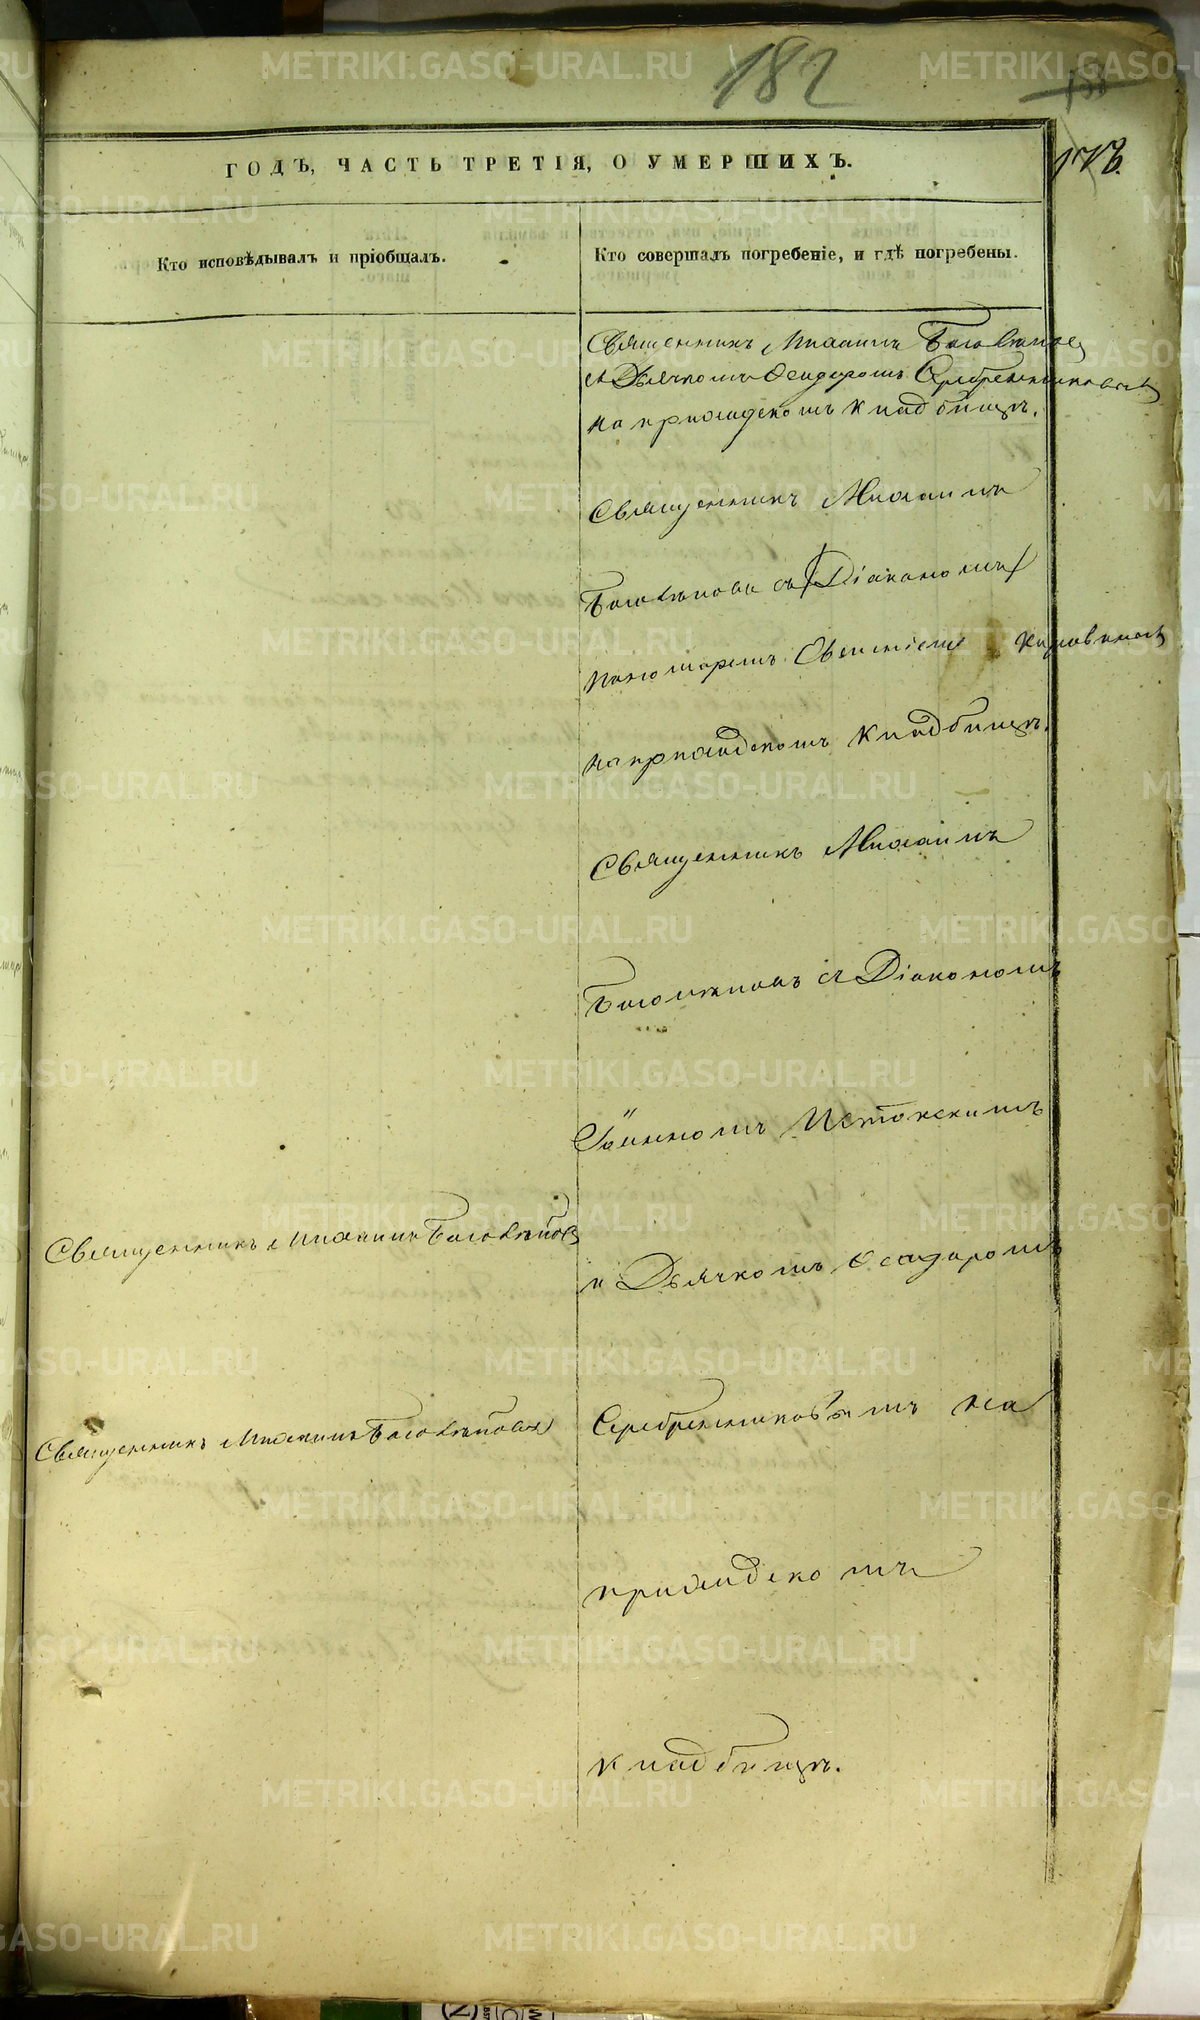 182
173.
ГОДЪ, ЧАСТЬ ТРЕТІЯ, О УМЕРШИХЪ.
Кто исповѣдывалъ и пріобщалъ.
Кто совершалъ погребеніе, и гдѣ погребены.
Священникъ Михаилъ Боголѣповъ
съ Дьячкомъ Ѳеодоромъ Серебренниковымъ
на приходскомъ кладбищѣ.
Священникъ Михаилъ
Боголѣповъ съ Діакономъ
пономаремъ Евгеніемъ
на приходскомъ кладбищѣ.
Священникъ Михаилъ
Боголѣповъ съ Діакономъ
Іоанномъ Истокскимъ
Священникъ Михаилъ Боголѣповъ
и Дьячкомъ Ѳеодоромъ
Священникъ Михаилъ Боголѣповъ
Серебренниковымъ на
приходскомъ
кладбищѣ.
METRIKI.GASO-URAL.RU